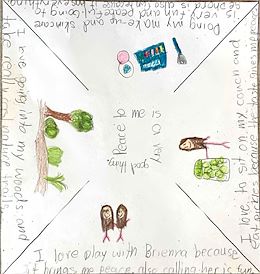 Doing my makeup and skincare
is very fun and peaceful. Going to
Sephora is also fun
Peace to me is
a very
good thing.
I love going into my woods and
the really cool nature trails
I love to sit on my couch and
eat pickles because
I love play with Brienna because
it brings me peace, also calling her is fun